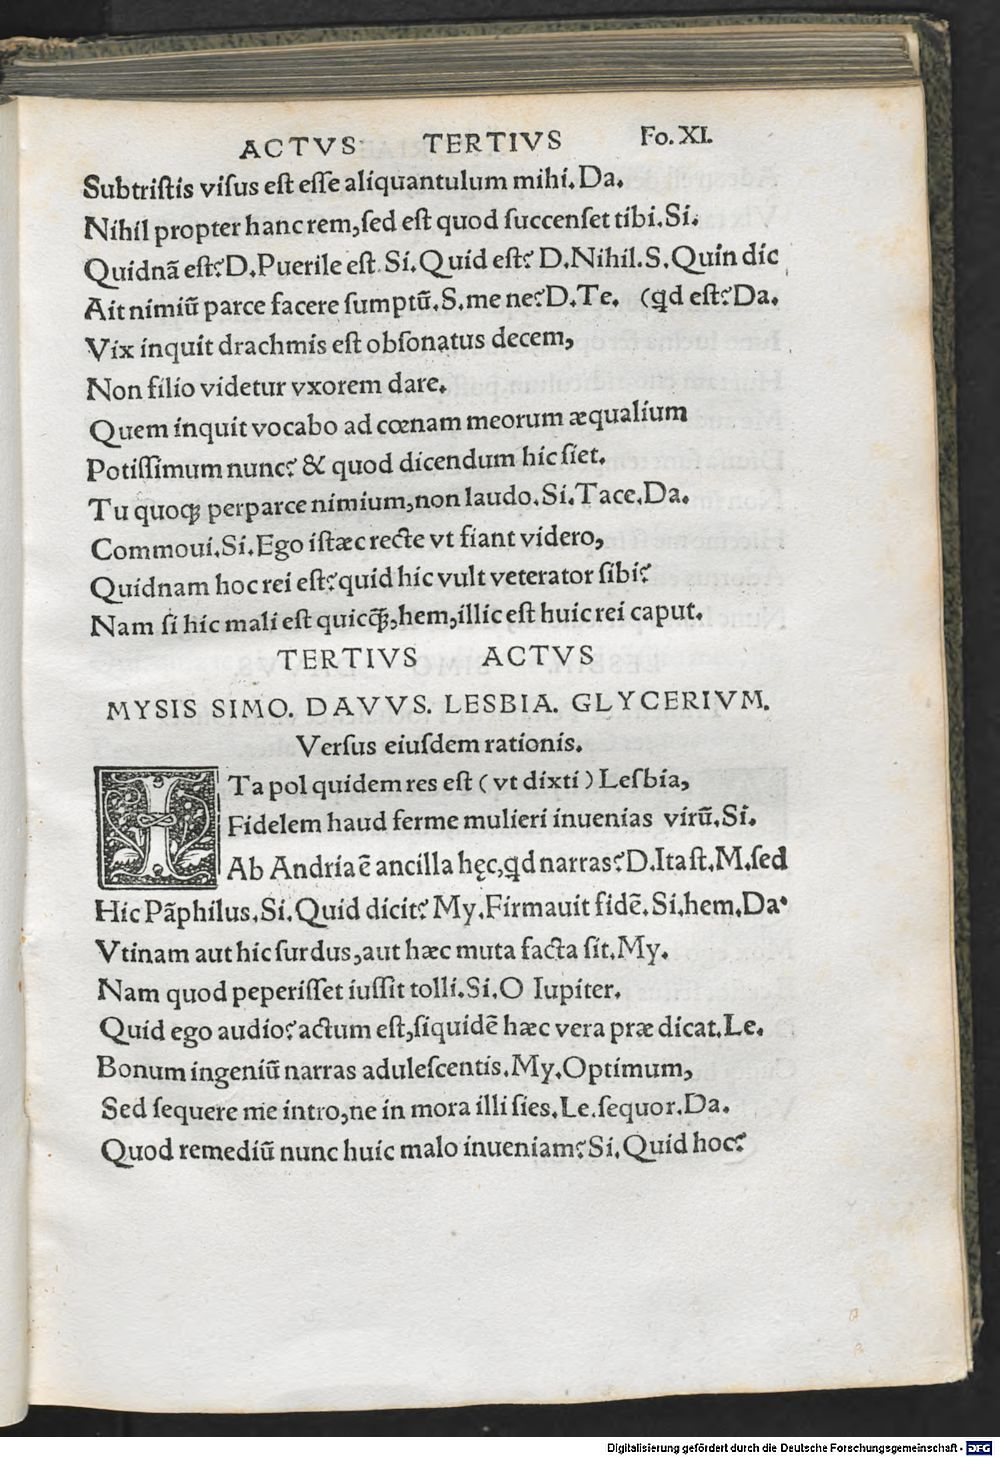 ACTVS TERTIVS Fo. XI.
Subtriſtis viſus eſt eſſe aliquantulum mihi. Da.
Nihil propter hanc rem, ſed eſt quod ſuccenſet tibi. Si.
Quidnã eſt? D. Puerile eſt. Si. Quid eſt? D. Nihil. S. Quin dic
Ait nimiũ parce facere ſumptũ. S. me ne? D. Te. (qd eſt? Da.
Vix inquit drachmis eſt obſonatus decem,
Non filio videtur vxorem dare.
Quem inquit vocabo ad cœnam meorum æqualium
Potiſſimum nunc? & quod dicendum hic ſiet.
Tu quoqꝫ perparce nimium, non laudo. Si. Tace. Da.
Commoui. Si. Ego iſtæc recte vt fiant videro,
Quidnam hoc rei eſt? quid hic vult veterator ſibi?
Nam ſi hic mali eſt quicq̃, hem, illic eſt huic rei caput.
TERTIVS ACTVS
MYSIS SIMO. DAVVS. LESBIA. GLYCERIVM.
Verſus eiuſdem rationis.
ITa pol quidem res eſt (vt dixti) Leſbia,
Fidelem haud ferme mulieri inuenias virũ. Si.
Ab Andria ẽ ancilla hęc, qd narras? D. Ita ſt. M. ſed
Hic Pãphilus. Si. Quid dicit? My. Firmauit fidẽ. Si. hem. Da.
Vtinam aut hic ſurdus, aut hæc muta facta ſit. My.
Nam quod peperiſſet iuſſit tolli. Si. O Iupiter.
Quid ego audio? actum eſt, ſiquidẽ hæc vera præ dicat. Le.
Bonum ingeniũ narras aduleſcentis. My. Optimum,
Sed ſequere me intro, ne in mora illi ſies. Le. ſequor. Da.
Quod remediũ nunc huic malo inueniam? Si. Quid hoc?
Digitalisierung gefördert durch die Deutsche Forschungsgemeinschaft - DFG